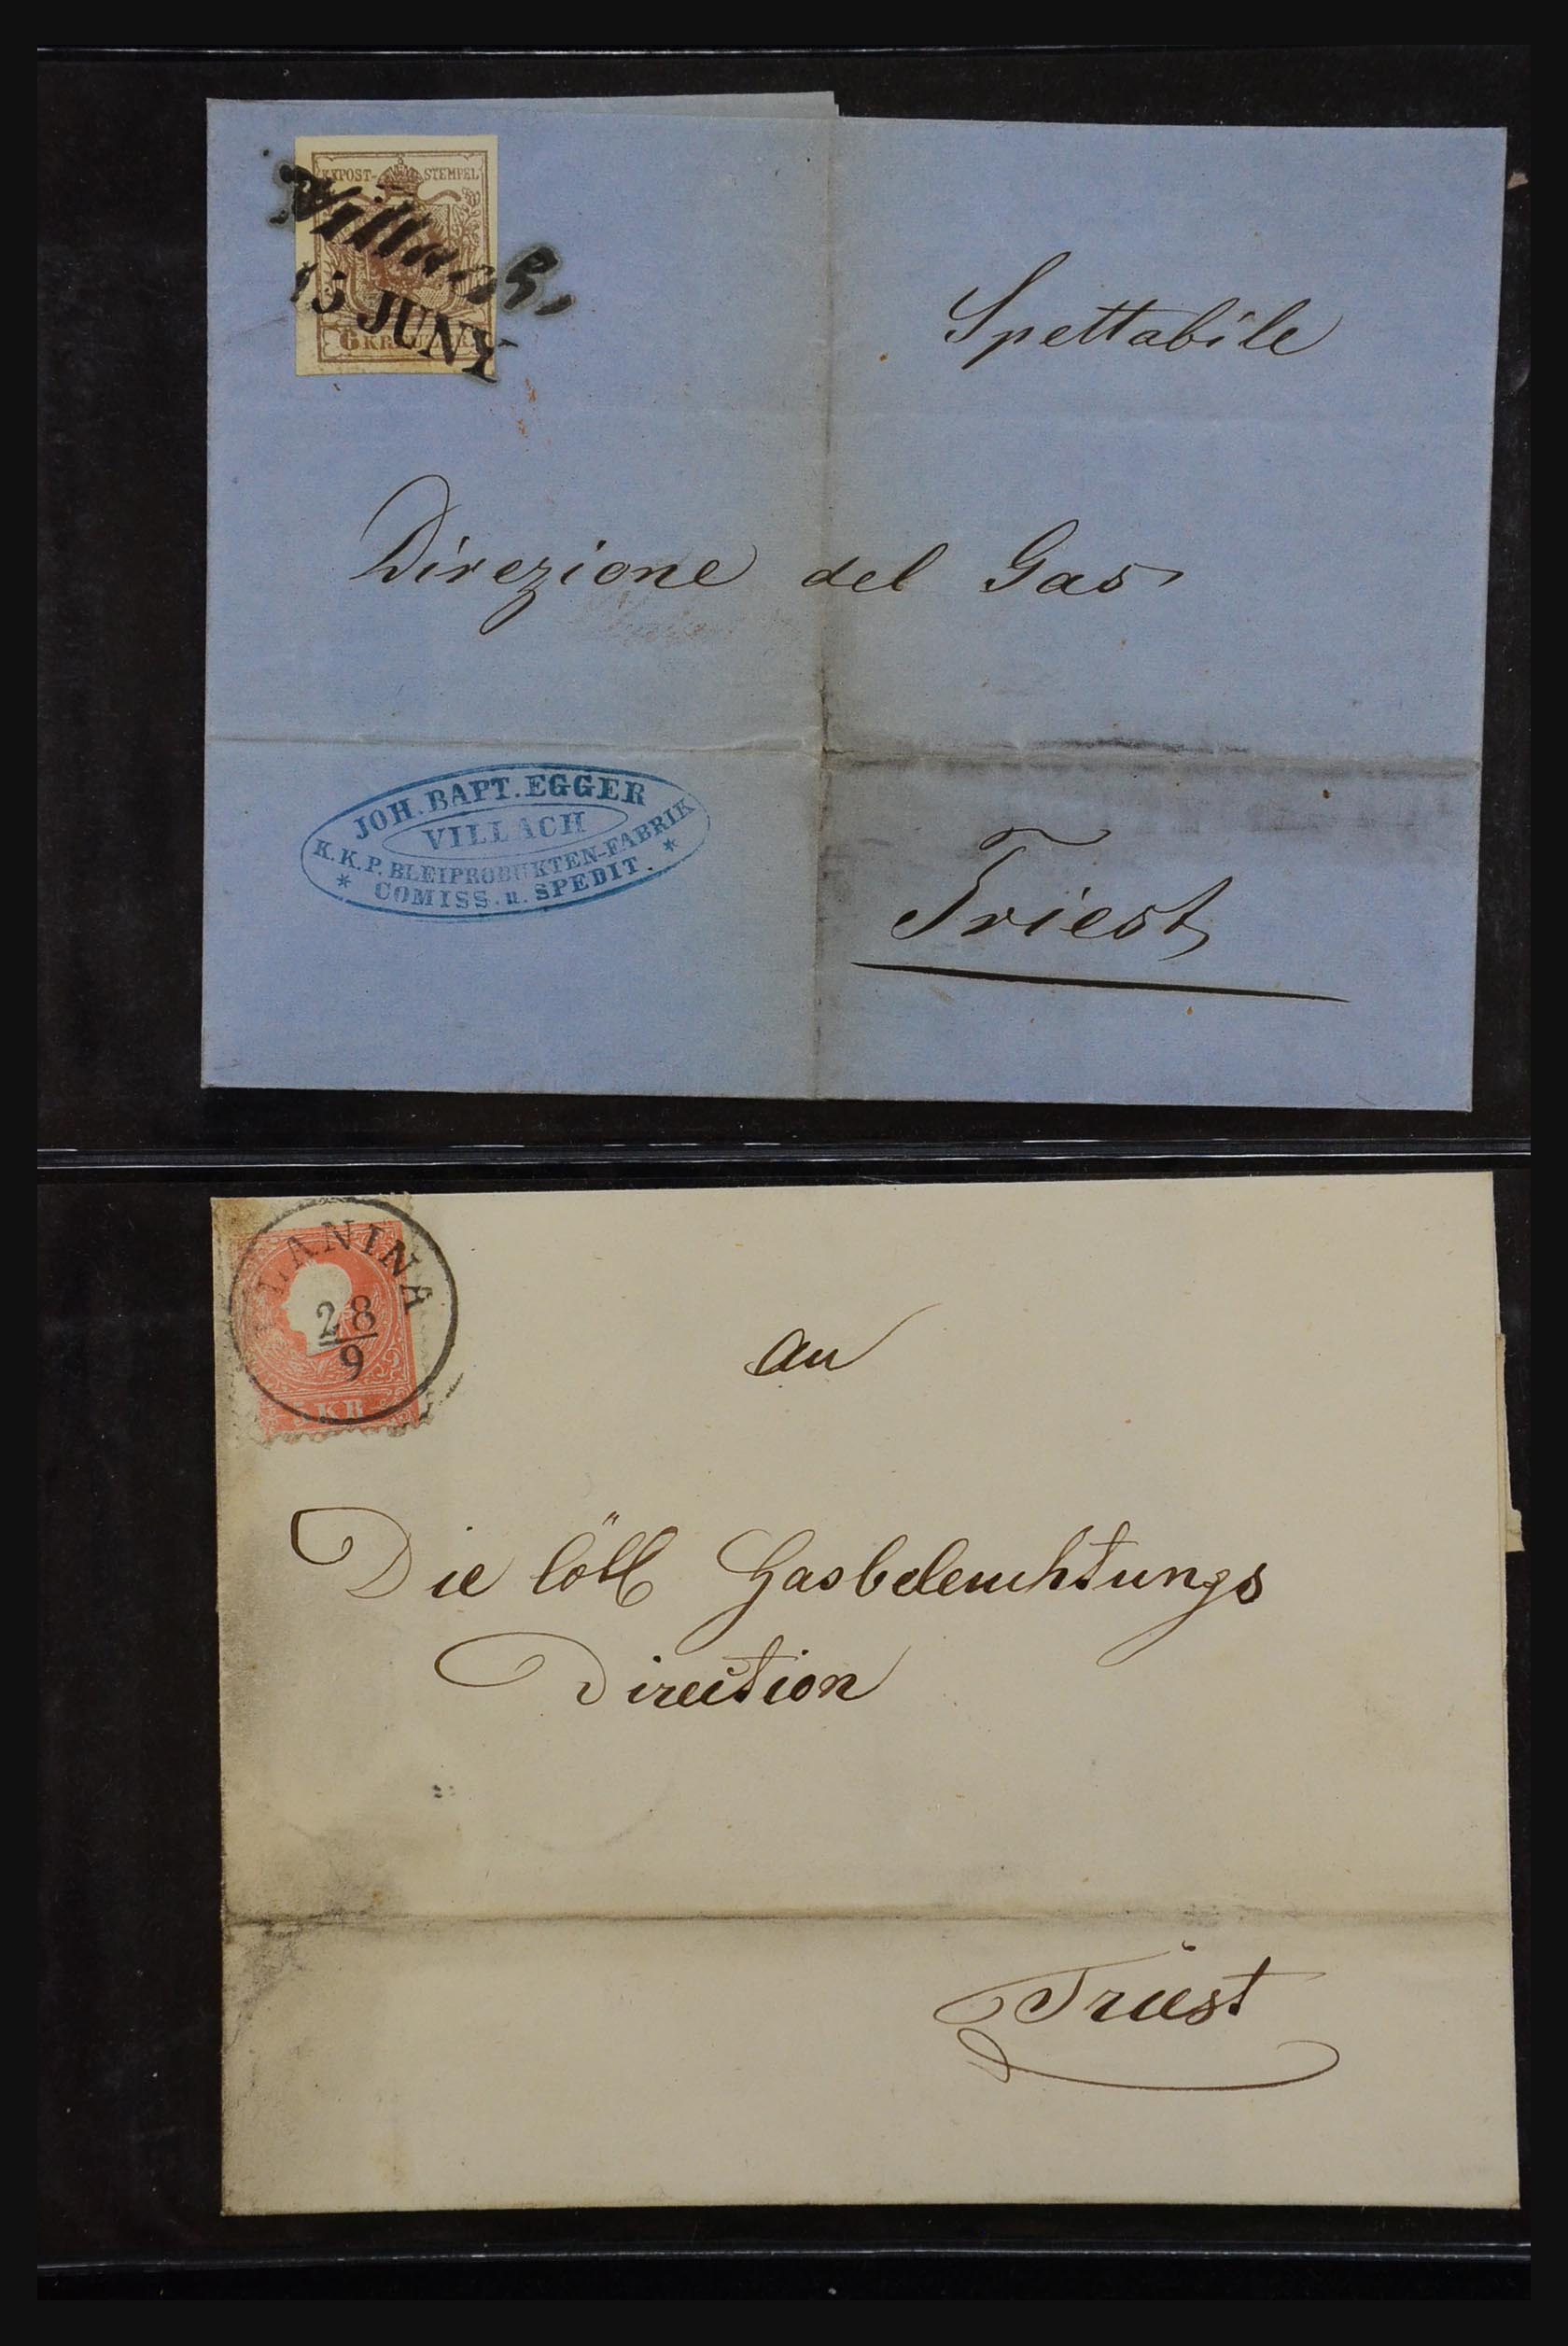 KKPOST-STEMPEL
Villach,
15 JUNY
6 KREUZER
Spettabile
Direzione del Gas
JOH. BAPT. EGGER
VILLACH
K.K.P. BLEIPRODUKTEN-FABRIK
* COMISS. u. SPEDIT. *
Triest
PLANINA
28
9
5 KR
An
Die löbl Gasbeleuchtungs
Direction
Triest